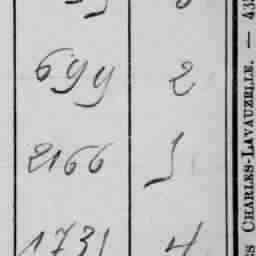 699 2
2166 1
1731 4
CHARLES-LAVAUZELLE. — 43